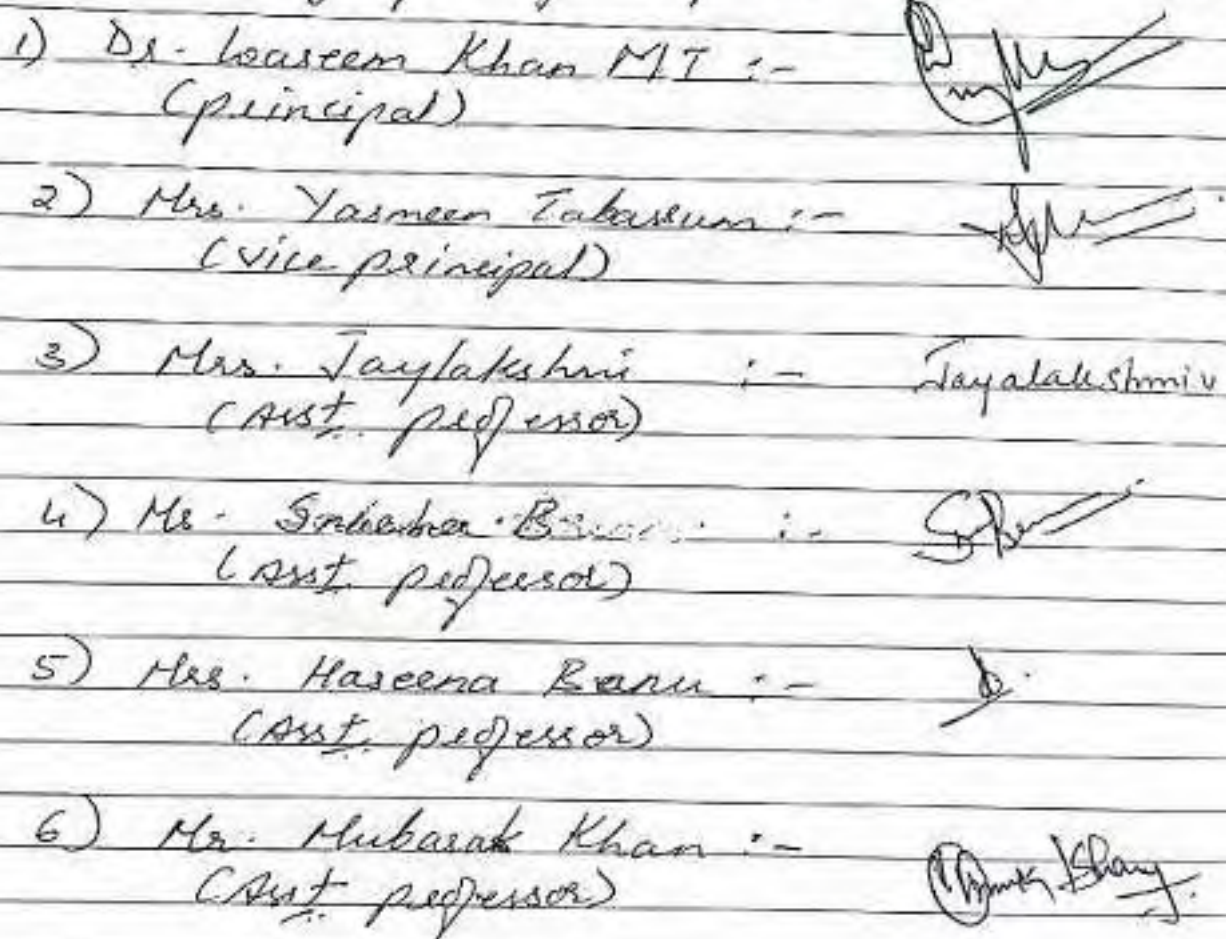 1) Dr. Waseem Khan MT :-
(principal)
2) Mrs. Yasmeen Tabassum :-
(vice principal)
3) Mrs. Jaylakshmi :- Jayalakshmi V
(Asst. professor)
4) Mr. :-
(Asst. professor)
5) Mrs. Haseena Banu :-
(Asst. professor)
6) Mr. Mubarak Khan :-
(Asst. professor)